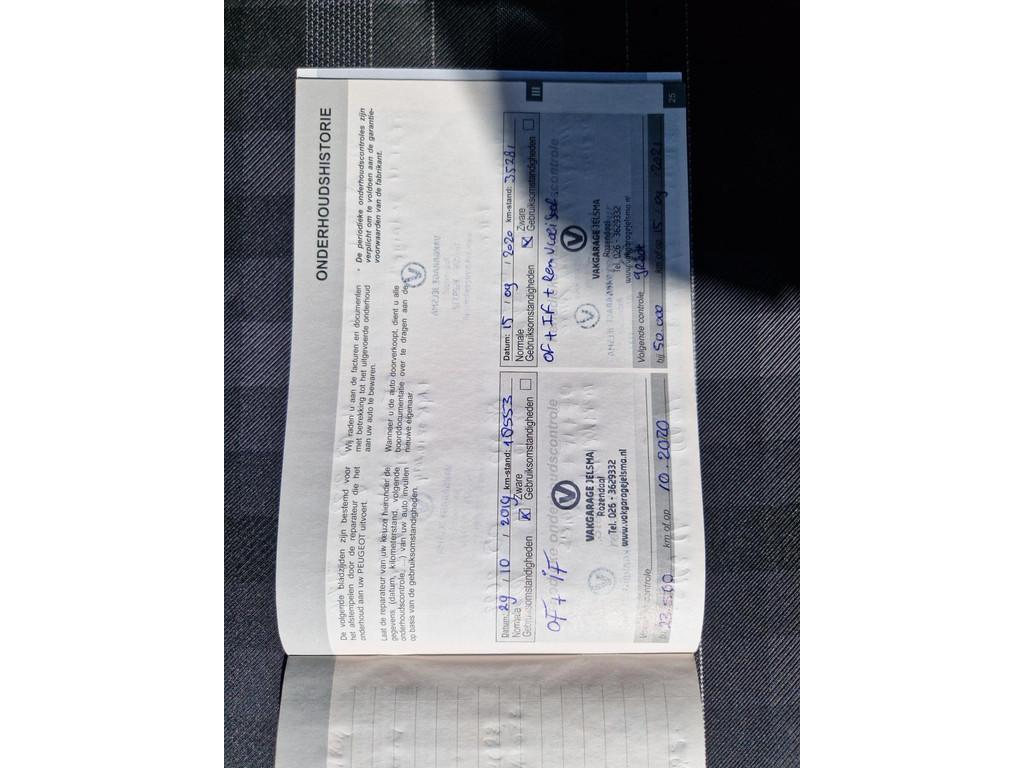 ONDERHOUDSHISTORIE
De volgende bladzijden zijn bestemd voor
het afstempelen door de reparateur die het
onderhoud aan uw PEUGEOT uitvoert.
Laat de reparateur van uw keuze hieronder de
gegevens (datum, kilometerstand, volgende
onderhoudscontrole, ...) van uw auto invullen
op basis van de gebruiksomstandigheden.
Wij raden u aan de facturen en documenten
met betrekking tot het uitgevoerde onderhoud
aan uw auto te bewaren.
Wanneer u de auto doorverkoopt, dient u alle
boorddocumentatie over te dragen aan de
nieuwe eigenaar.
* De periodieke onderhoudscontroles zijn
verplicht om te voldoen aan de garantie-
voorwaarden van de fabrikant.
III
Datum: 29 / 10 / 2019 km-stand: 18553
Normale Zware
Gebruiksomstandigheden Gebruiksomstandigheden
OF + IF
VAKGARAGE JELSMA
Rozendaal
Tel. 026 - 3629332
www.vakgaragejelsma.nl
Volgende controle
km of op 10.2020
Datum: 15 / 09 / 2020 km-stand: 35281
Normale Zware
Gebruiksomstandigheden Gebruiksomstandigheden
OF + IF + Remvloeistof
VAKGARAGE JELSMA
Rozendaal
Tel. 026 - 3629332
www.vakgaragejelsma.nl
Volgende controle groot
bij 50.000 km of op 15 - 09 - 2021
25